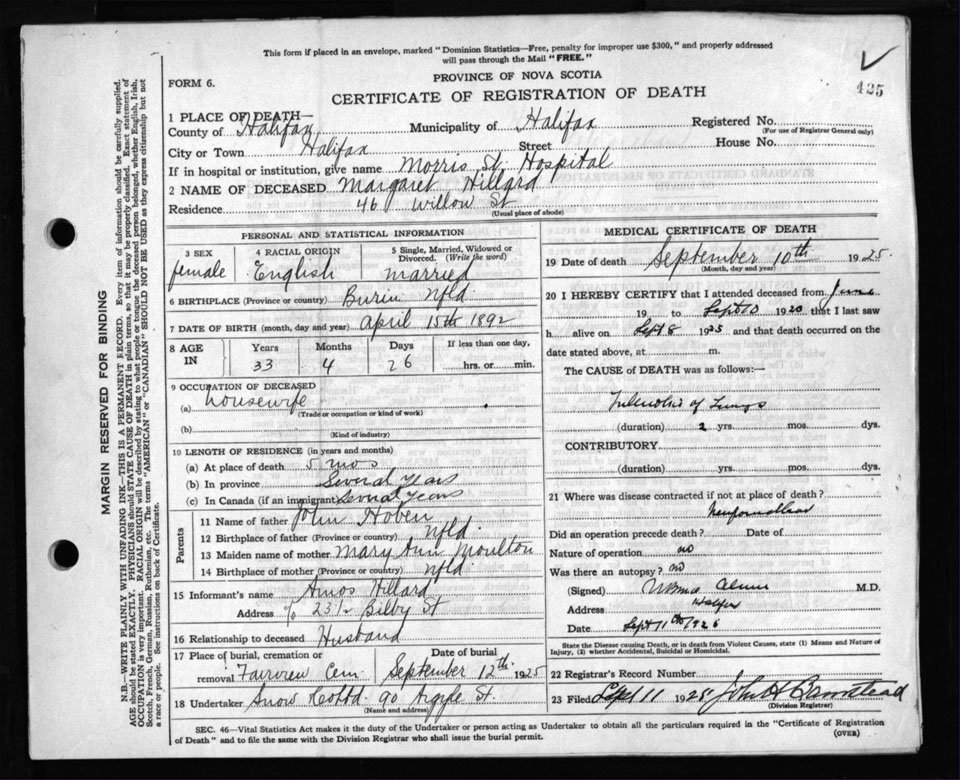 This form if placed in an envelope, marked "Dominion Statistics—Free, penalty for improper use $300," and properly addressed
will pass through the Mail "FREE."
425
PROVINCE OF NOVA SCOTIA
FORM 6.
CERTIFICATE OF REGISTRATION OF DEATH
1 PLACE OF DEATH—
County of Halifax Municipality of Halifax Registered No.
(For use of Registrar General only)
City or Town Halifax Street House No.
If in hospital or institution, give name Morris St. Hospital
2 NAME OF DECEASED Margaret Hillard
Residence 46 Willow St
(Usual place of abode)
PERSONAL AND STATISTICAL INFORMATION
3 SEX 4 RACIAL ORIGIN 5 Single, Married, Widowed or
Divorced. (Write the word)
female English married
6 BIRTHPLACE (Province or country) Burin Nfld
7 DATE OF BIRTH (month, day and year) April 15th 1892
8 AGE IN Years Months Days If less than one day,
33 4 26 hrs. or min.
9 OCCUPATION OF DECEASED
(a) housewife
(Trade or occupation or kind of work)
(b)
(Kind of industry)
10 LENGTH OF RESIDENCE (in years and months)
(a) At place of death 5 mos
(b) In province Several Years
(c) In Canada (if an immigrant) Several Years
Parents
11 Name of father John Hoben
12 Birthplace of father (Province or country) Nfld.
13 Maiden name of mother Mary Ann Moulton
14 Birthplace of mother (Province or country) Nfld.
15 Informant's name Amos Hillard
Address 23½ Bilby St
16 Relationship to deceased Husband
17 Place of burial, cremation or Date of burial
removal Fairview Cem. September 12th 1925
18 Undertaker Snow Co Ltd. 90 Argyle St.
(Name and address)
MEDICAL CERTIFICATE OF DEATH
19 Date of death September 10th 1925.
(Month, day and year)
20 I HEREBY CERTIFY that I attended deceased from June
19 to Sept 10 1920 that I last saw
h alive on Sept 8 1925 and that death occurred on
date stated above, at m.
The CAUSE of DEATH was as follows:—
of Lungs
(duration) 2 yrs. mos. dys.
CONTRIBUTORY
(duration) yrs. mos. dys.
21 Where was disease contracted if not at place of death?
Newfoundland
Did an operation precede death? Date of
Nature of operation no
Was there an autopsy? no
(Signed) M.D.
Address Halifax
Date Sept 11th 1925
State the Disease causing Death, or in death from Violent Causes, state (1) Means and Nature of
Injury, (2) whether Accidental, Suicidal or Homicidal.
22 Registrar's Record Number
23 Filed Sept 11 1925 John H Barnstead
(Division Registrar)
SEC. 46—Vital Statistics Act makes it the duty of the Undertaker or person acting as Undertaker to obtain all the particulars required in the "Certificate of Registration
of Death" and to file the same with the Division Registrar who shall issue the burial permit.
(OVER)
MARGIN RESERVED FOR BINDING
N.B.—WRITE PLAINLY WITH UNFADING INK—THIS IS A PERMANENT RECORD. Every item of information should be carefully supplied.
AGE should be stated EXACTLY. PHYSICIANS should STATE CAUSE OF DEATH in plain terms, so that it may be properly classified. Exact statement of
OCCUPATION is very important. RACIAL ORIGIN will be described by stating to what people or tongue the deceased person belonged, whether English, Irish,
Scotch, French, German, Russian, Ruthenian, etc. The terms "AMERICAN" or "CANADIAN" SHOULD NOT BE USED as they express citizenship but not
a race or people. See instructions on back of Certificate.